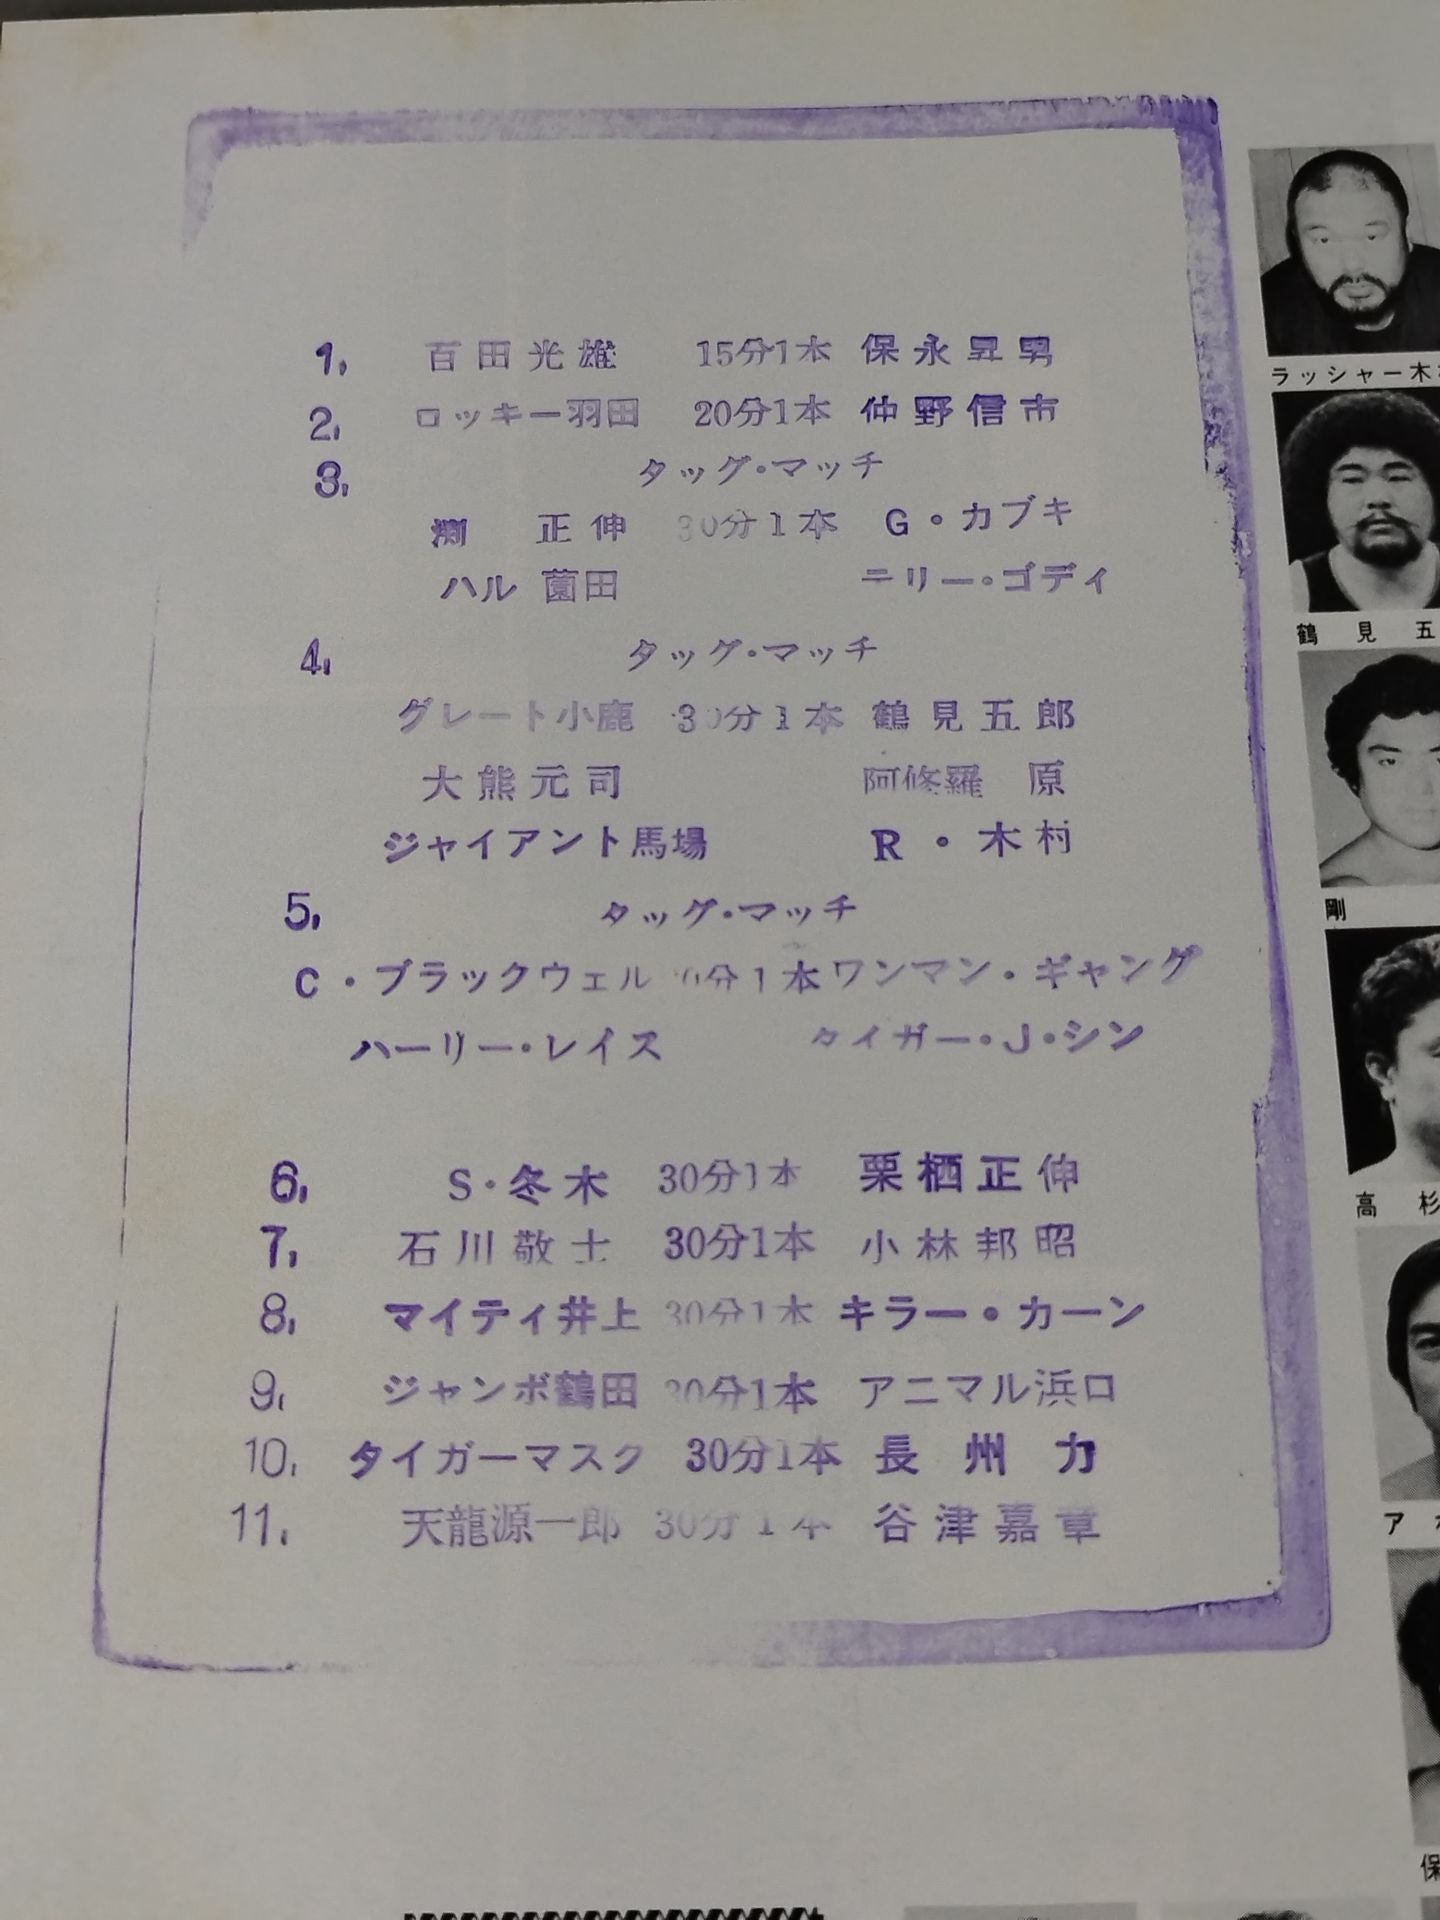 1. 百田光雄 15分1本 保永昇男
2. ロッキー羽田 20分1本 仲野信市
3. タッグ・マッチ
渕 正伸 30分1本 G・カブキ
ハル 薗田 テリー・ゴディ
4. タッグ・マッチ
グレート小鹿 30分1本 鶴見五郎
大熊元司 阿修羅 原
ジャイアント馬場 R・木村
5. タッグ・マッチ
C・ブラックウェル 0分1本 ワンマン・ギャング
ハーリー・レイス タイガー・J・シン
6. S・冬木 30分1本 栗栖正伸
7. 石川敬士 30分1本 小林邦昭
8. マイティ井上 30分1本 キラー・カーン
9. ジャンボ鶴田 30分1本 アニマル浜口
10. タイガーマスク 30分1本 長州力
11. 天龍源一郎 30分1本 谷津嘉章
ラッシャー木
鶴見五
剛
高杉
ア
保